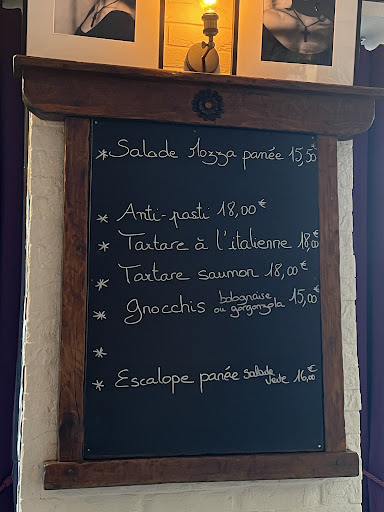 * Salade Mozza panée 15,50€
* Anti-pasti 18,00€
* Tartare à l'italienne 18,00€
* Tartare saumon 18,00€
* Gnocchis bolognaise ou gorgonzola 15,00€
*
* Escalope panée salade verte 16,00€